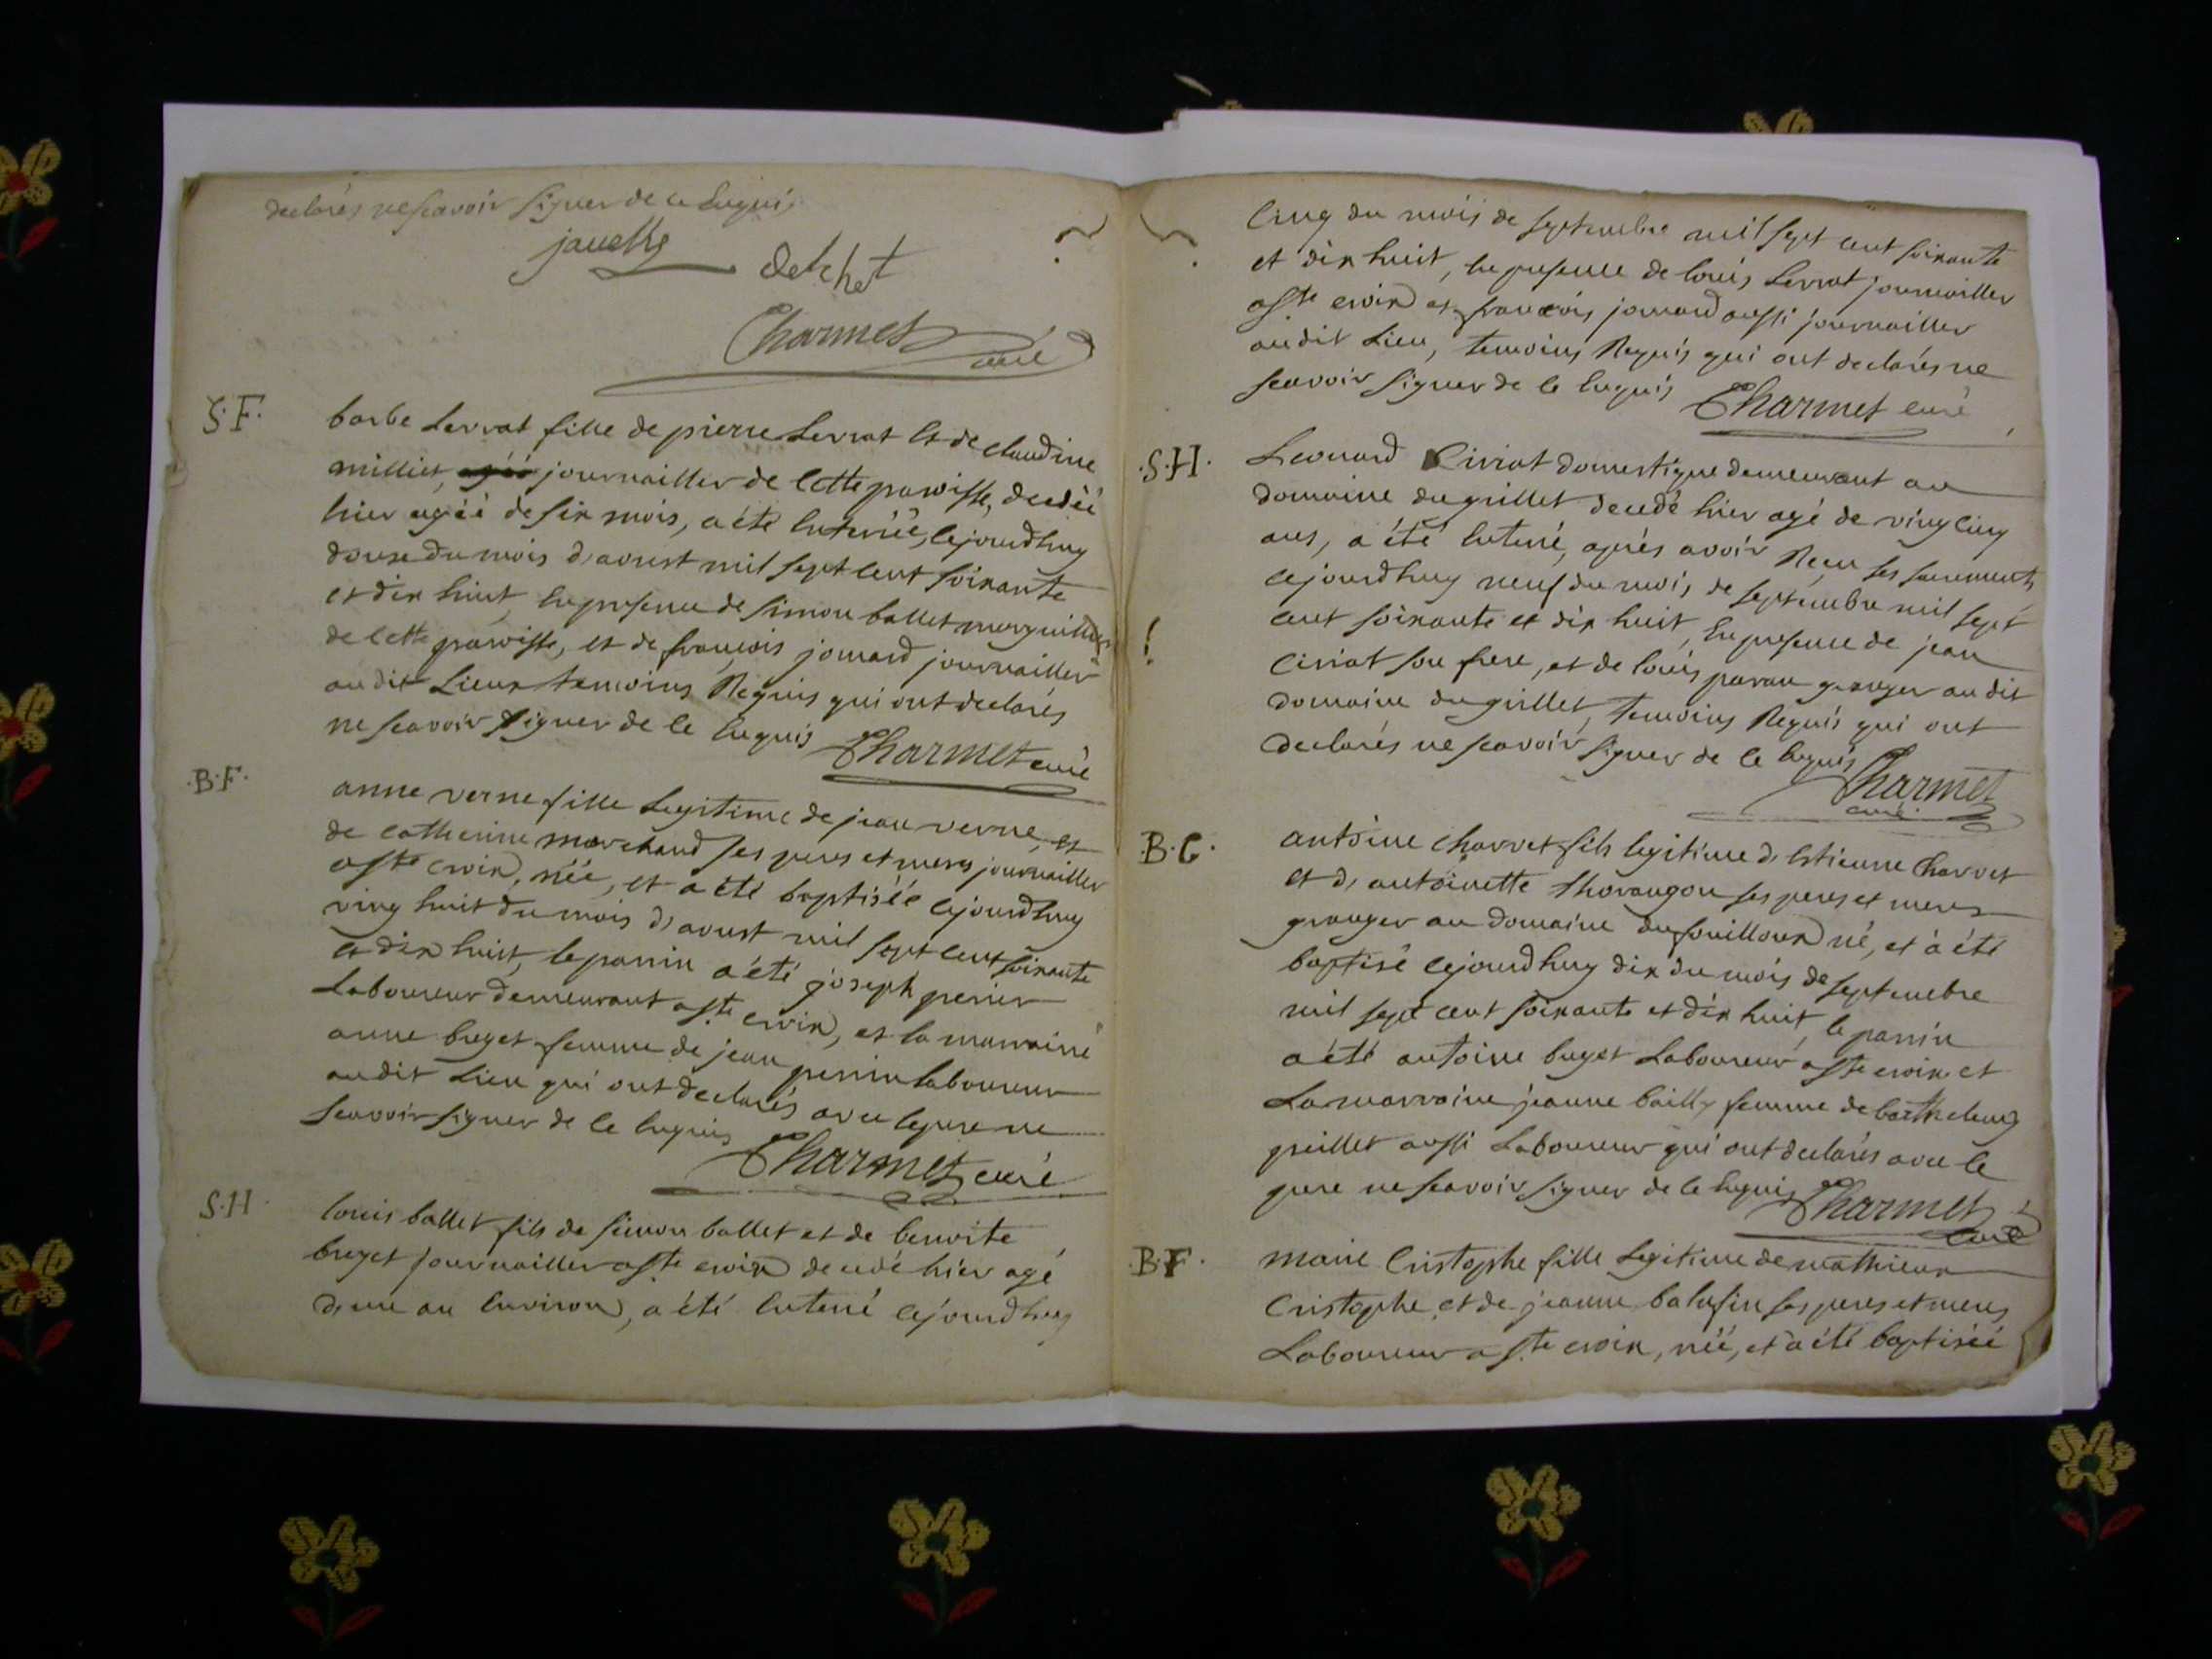 declarés ne scavoir signer de ce enquis
javelle
delchet
Charmet
curé
S.F.
barbe Serrat fille de pierre Serrat et de claudine
milliet, journailler de cette paroisse, decedéé
hier agéé de six mois, a été enterréé, cejourdhuy
douze du mois d'avoust mil sept cent soixante
et dix huit, en presence de simon ballet marguillier
de cette paroisse, et de francois jomard journailler
au dit Lieux temoins Requis qui ont declarés
ne scavoir signer de ce enquis Charmet curé
B.F.
anne verne fille Legitime de jean verne, et
de catherine marchand ses peres et meres journailler
a ste croix, néé, et a été baptiséé cejourdhuy
ving huit du mois d'avoust mil sept cent soixante
et dix huit, le parrin a été joseph perier
Laboureur demeurant a ste croix, et la marraine
anne buget femme de jean perrin laboureur
audit Lieu qui ont declarés avec le pere ne
scavoir signer de ce enquis
Charmet curé
S.H.
louis ballet fils de simon ballet et de benoite
buget journailler a ste croix decedé hier agé
d'une an environ, a été enterré cejourdhuy
cinq du mois de septembre mil sept cent soixante
et dix huit, en presence de louis Serrat journailler
a ste croix et francois jomard aussi journailler
audit Lieu, temoins Requis qui ont declarés ne
scavoir signer de ce enquis Charmet curé
.S.H.
Leonard Ciriat domestique demeurant au
domaine du grillet decedé hier agé de ving cinq
ans, a été enterré, aprés avoir Recu ses sacrements
cejourdhuy neuf du mois de septembre mil sept
cent soixante et dix huit, en presence de jean
Ciriat son frere, et de louis pavan granger au dit
domaine du grillet, temoins Requis qui ont
declarés ne scavoir signer de ce enquis
Charmet
curé
B.G.
antoine Charvet fils legitime d'estienne Charvet
et d'antoinette thorangon ses peres et meres
granger au domaine du fouilloux né, et a été
baptisé cejourdhuy dix du mois de septembre
mil sept cent soixante et dix huit, le parrin
a été antoine buget Laboureur a ste croix et
La marraine jeanne bailly femme de barthelemy
grillet aussi Laboureur qui ont declarés avec le
pere ne scavoir signer de ce enquis Charmet
curé
B.F.
marie Cristophe fille Legitime de mathieux
Cristophe et de jeanne balufin ses peres et meres
Laboureur a ste croix, néé, et a été baptiséé